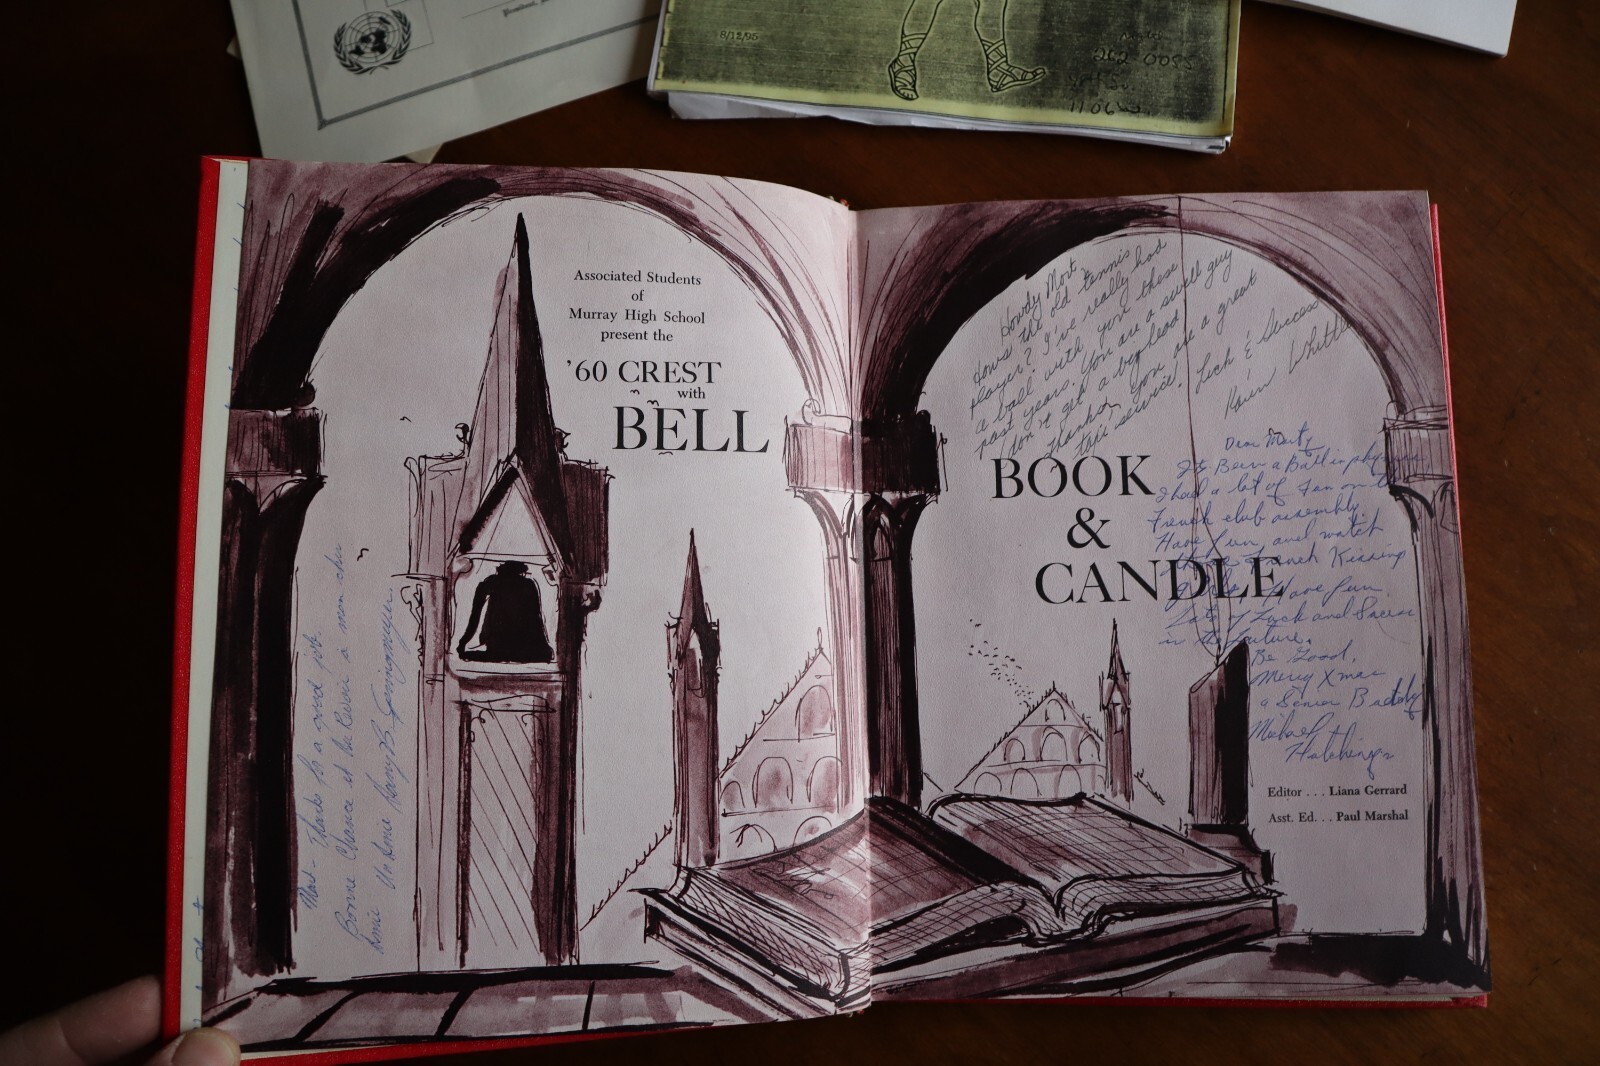 8/12/95
262 0095
1106 W.
Associated Students
of
Murray High School
present the
'60 CREST
with
BELL
Mort - Thanks for a good job.
Bonne Chance et au Revoir a mon cher
Howdy Mort
Hows the old tennis
player? I've really had
a ball with you these
past years. You are a swell guy
don't get a big head
Thanks for you are a great
taxi service! Luck & Success
BOOK
&
CANDLE
Dear Morty
Its Been a Ball in
I had a lot of fun on the
French club assembly.
Have fun and watch
those French Kissing
girls. Have fun
Lots of Luck and Success
in the future.
Be Good,
Merry Xmas
a Senior Buddy
Michael
Hutchings
Editor . . . Liana Gerrard
Asst. Ed. . . Paul Marshal